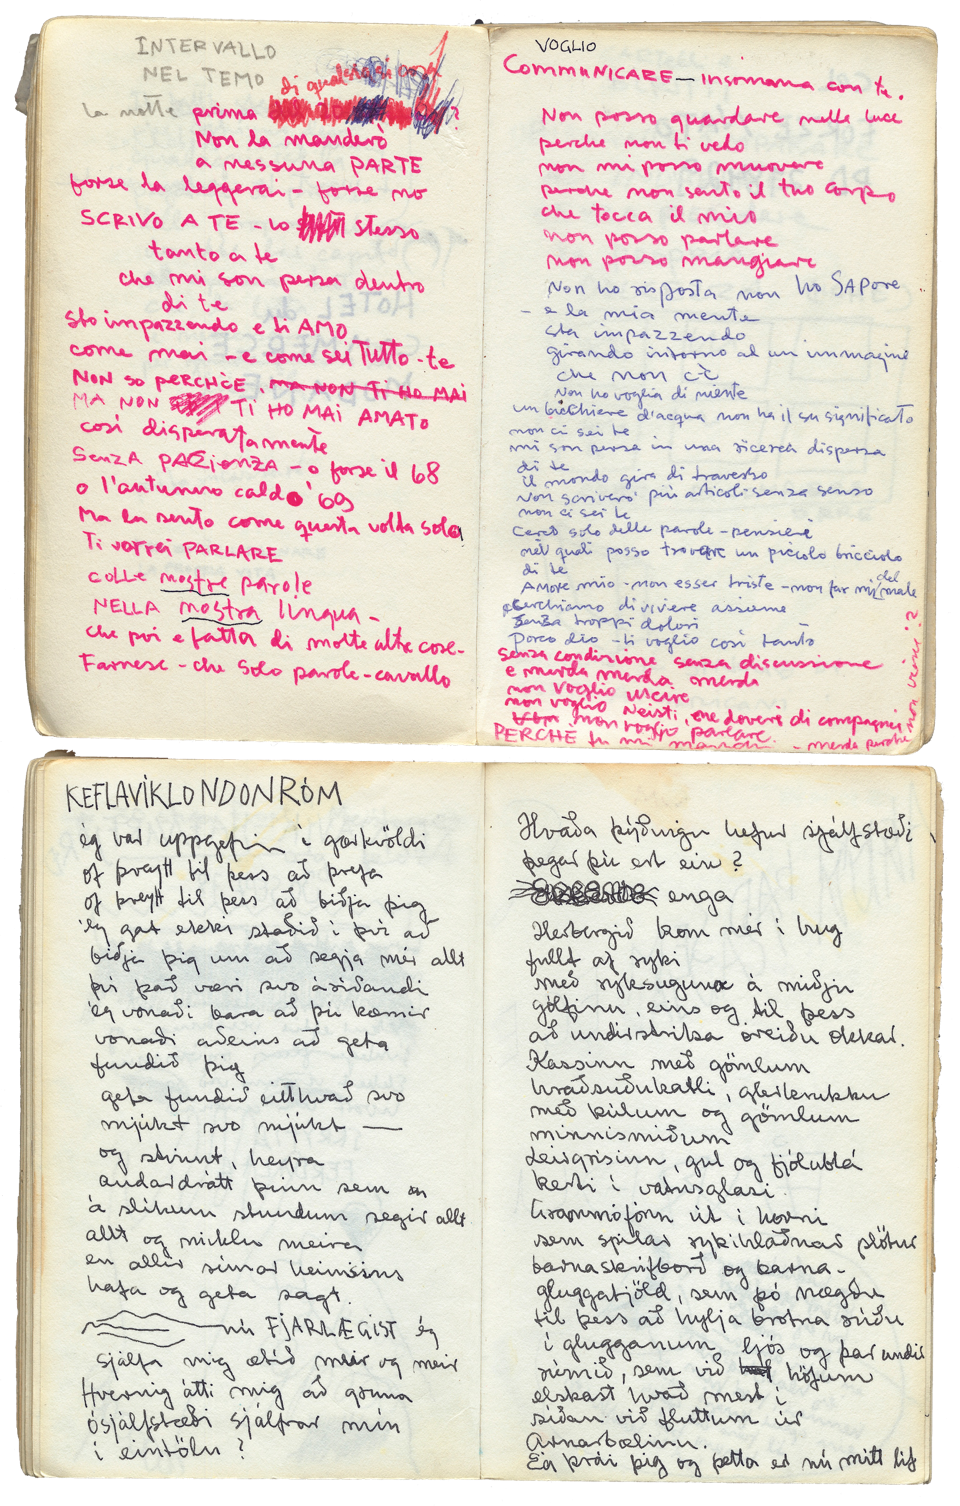 INTERVALLO
NEL TEMO
la notte prima di qualsiasi cosa
Non la manderò
a nessuna PARTE
forse la leggerai - forse no
SCRIVO A TE - lo stesso
tanto a te
che mi son persa dentro
di te
Sto impazzendo e ti AMO
come mai - e come sei TUTTO - te
NON SO PERCHÈ. MA NON TI HO MAI
MA NON TI HO MAI AMATO
così disperatamente
SENZA PAZIENZA - o forse il 68
o l'autunno caldo '69
Ma la sento come questa volta sola
Ti vorrei PARLARE
COLLE nostre parole
NELLA nostra lingua -
che poi e fatta di molte altre cose -
Farnese - che solo parole - cavallo
VOGLIO
COMMUNICARE - insomma con te.
Non posso guardare nelle luce
perche non ti vedo
non mi posso muovere
perche non sento il tuo corpo
che tocca il mio
non posso parlare
non posso mangiare
Non ho risposta non ho SAPore
- e la mia mente
sta impazzendo
girando intorno al un immagine
che non c'è
Non ho voglia di niente
un bicchiere d'acqua non ha il su significato
non ci sei te
mi son persa in una ricerca dispersa
di te
il mondo gira di traverso
Non scriverò più articoli senza senso
non ci sei te
Cerco solo delle parole - pensieri
nei quali posso trovare un piccolo bricciolo
di te
AMORE mio - non esser triste - non far mi del male
cerchiamo di vivere assieme
senza troppi dolori
Porco dio - ti voglio così tanto
senza condizione senza discussione
e merda merda merda
non voglio uscire
non voglio Neisti, ne doveri di compagnei
non voglio parlare
PERCHE tu mi manchi - merda perche
non vieni!?
KEFLAVÍKLONDONRÓM
ég var uppgefin í gærkvöldi
of þreytt til þess að þrefa
of þreytt til þess að biðja þig
ég gat ekki staðið í því að
biðja þig um að segja mér allt
því það væri svo ásíðandi
ég vonaði bara að þú kæmir
vonaði aðeins að geta
fundið þig
geta fundið eitthvað svo
mjúkt svo mjúkt —
og stinnt, heyra
andardrátt þinn sem
á slíkum stundum segir allt
allt og miklu meira
en allir símar heimsins
hafa og geta sagt.
nú FJARLÆGIST ég
sjálfa mig ætíð meir og meir
Hvernig átti mig að gruna
ósjálfstæði sjálfrar mín
í eintölu?
Hvaða þýðingu hefur sjálfstæði
þegar þú ert ein?
enga
Herbergið kom mér í hug
fullt af ryki
með ryksuguna á miðju
gólfinu, eins og til þess
að undirstrika óreiðu okkar.
Kassinn með gömlum
hraðsuðukatli, glerkrukku
með kúlum og gömlum
minnismiðum
Leirgrísinn, gul og fjólublá
kerti í vatnsglasi.
Grammófónn út í horni
sem spilar rykhlaðnar plötur
barnaskrifborð og barna-
gluggatjöld, sem þó nægðu
til þess að hylja brotna rúðu
í glugganum ljós og þar undir
rúmið, sem við höfum
elskast hvað mest í
síðan við fluttum úr
Arnarbælinu.
Ég þrái þig og þetta er nú mitt líf